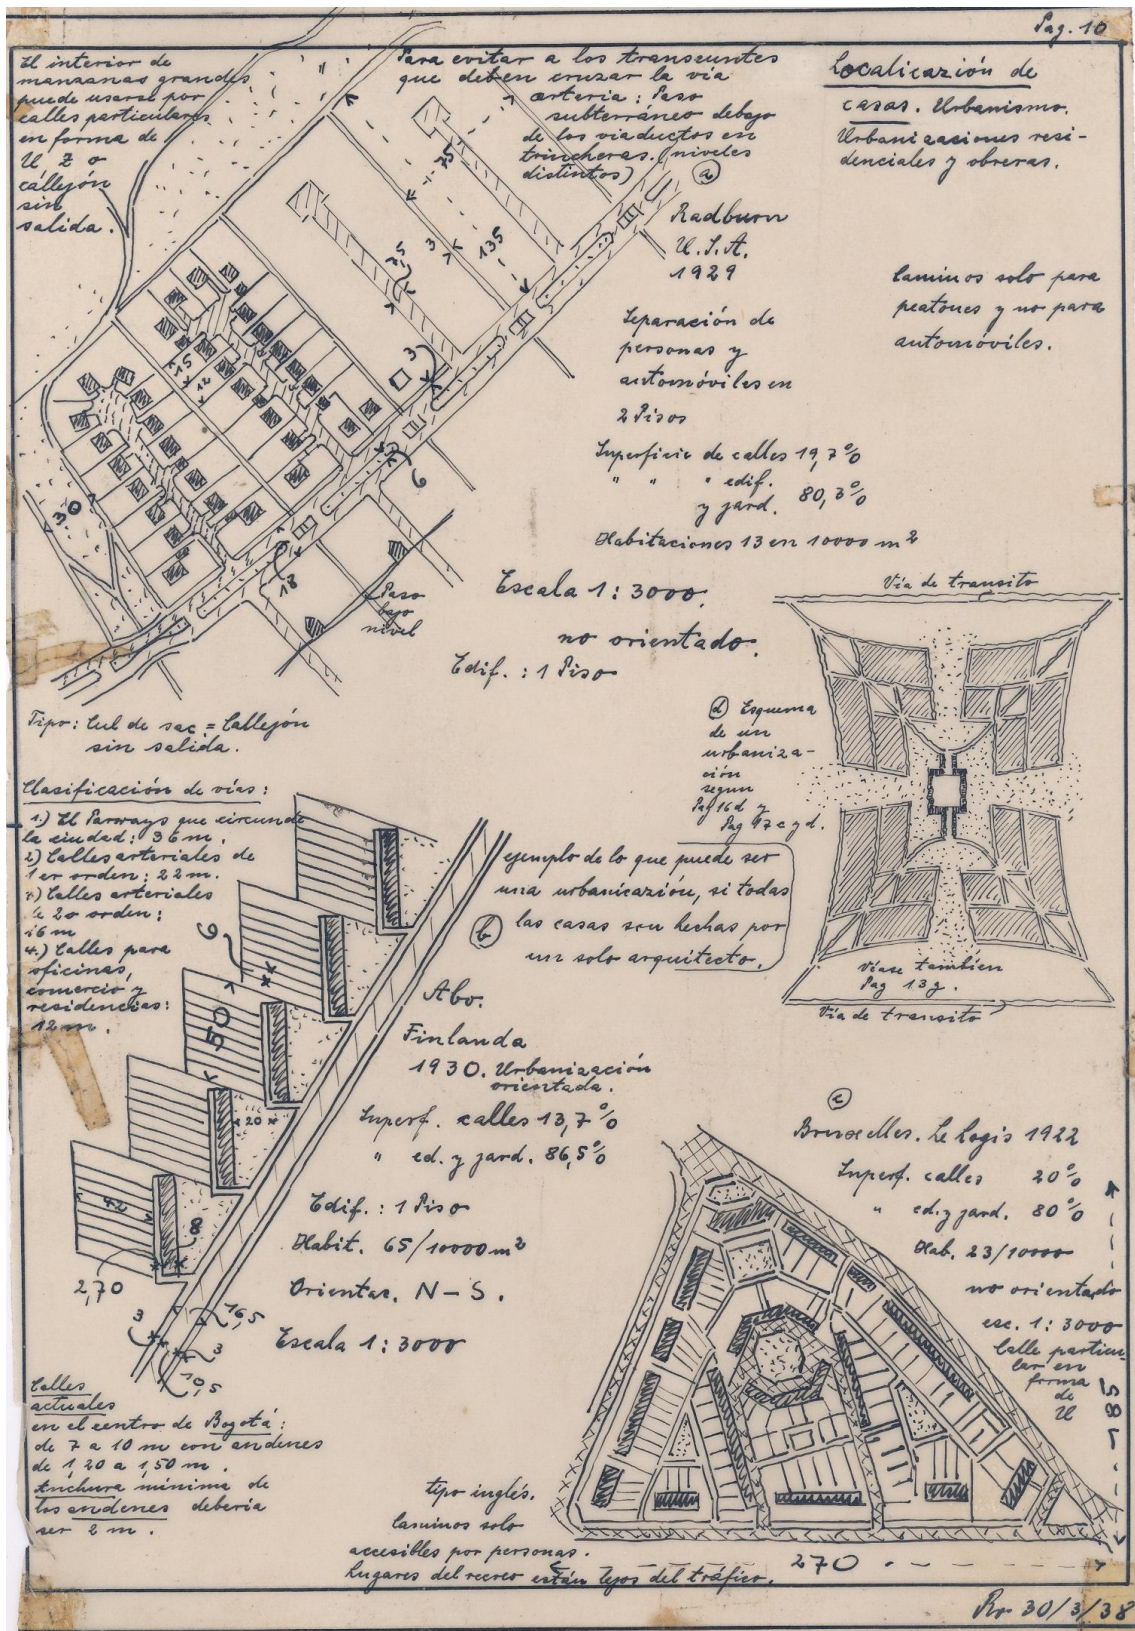 Pag. 10
El interior de
manzanas grandes
puede usarse por
calles particulares
en forma de
U Z o
callejón
sin
salida.
Para evitar a los transeuntes
que deben cruzar la via
arteria: Paso
subterráneo debajo
de los viaductos en
trincheras. (niveles
distintos)
a
Localización de
casas. Urbanismo.
Urbanizaciones resi-
denciales y obreras.
Radburn
U.S.A.
1929
Caminos solo para
peatones y no para
automóviles.
Separación de
personas y
automóviles en
2 Pisos
Superficie de calles 19,7%
" " " edif.
y jard. 80,3%
Habitaciones 13 en 10000 m2
Escala 1:3000.
no orientado.
Edif.: 1 Piso
75
3
135
75
3
15
12
6
30
18
Paso
bajo
nivel
Tipo: Cul de sac = Callejón
sin salida.
Via de transito
d Esquema
de un
urbaniza-
ción
segun
Pag 16d y
Pag 47c y d.
Vease tambien
Pag 13g.
Via de transito
Clasificación de vias:
1.) El Parways que circunde
la ciudad: 36 m.
2) Calles arteriales de
1er orden: 22 m.
3) Calles arteriales
de 2o orden:
16 m
4.) Calles para
oficinas,
comercio y
residencias:
12 m.
ejemplo de lo que puede ser
una urbanización, si todas
las casas son hechas por
un solo arquitecto.
b
Abo.
Finlanda
1930. Urbanización
orientada.
Superf. calles 13,7%
" ed. y jard. 86,5%
Edif.: 1 Piso
Habit. 65/10000 m2
Orientac. N-S.
Escala 1:3000
6
50
20
42
8
2,70
3
16,5
3
10,5
Calles
actuales
en el centro de Bogotá:
de 7 a 10 m con andenes
de 1,20 a 1,50 m.
Anchura mínima de
los andenes deberia
ser 2 m.
c
Bruxelles. Le Logis 1922
Superf. calles 20%
" ed. y jard. 80%
Hab. 23/10000
no orientado
esc. 1:3000
Calle particu-
lar en
forma
de
U
185
270
tipo inglés.
Caminos solo
accesibles por personas.
Lugares del recreo están lejos del tráfico.
Ro 30/3/38